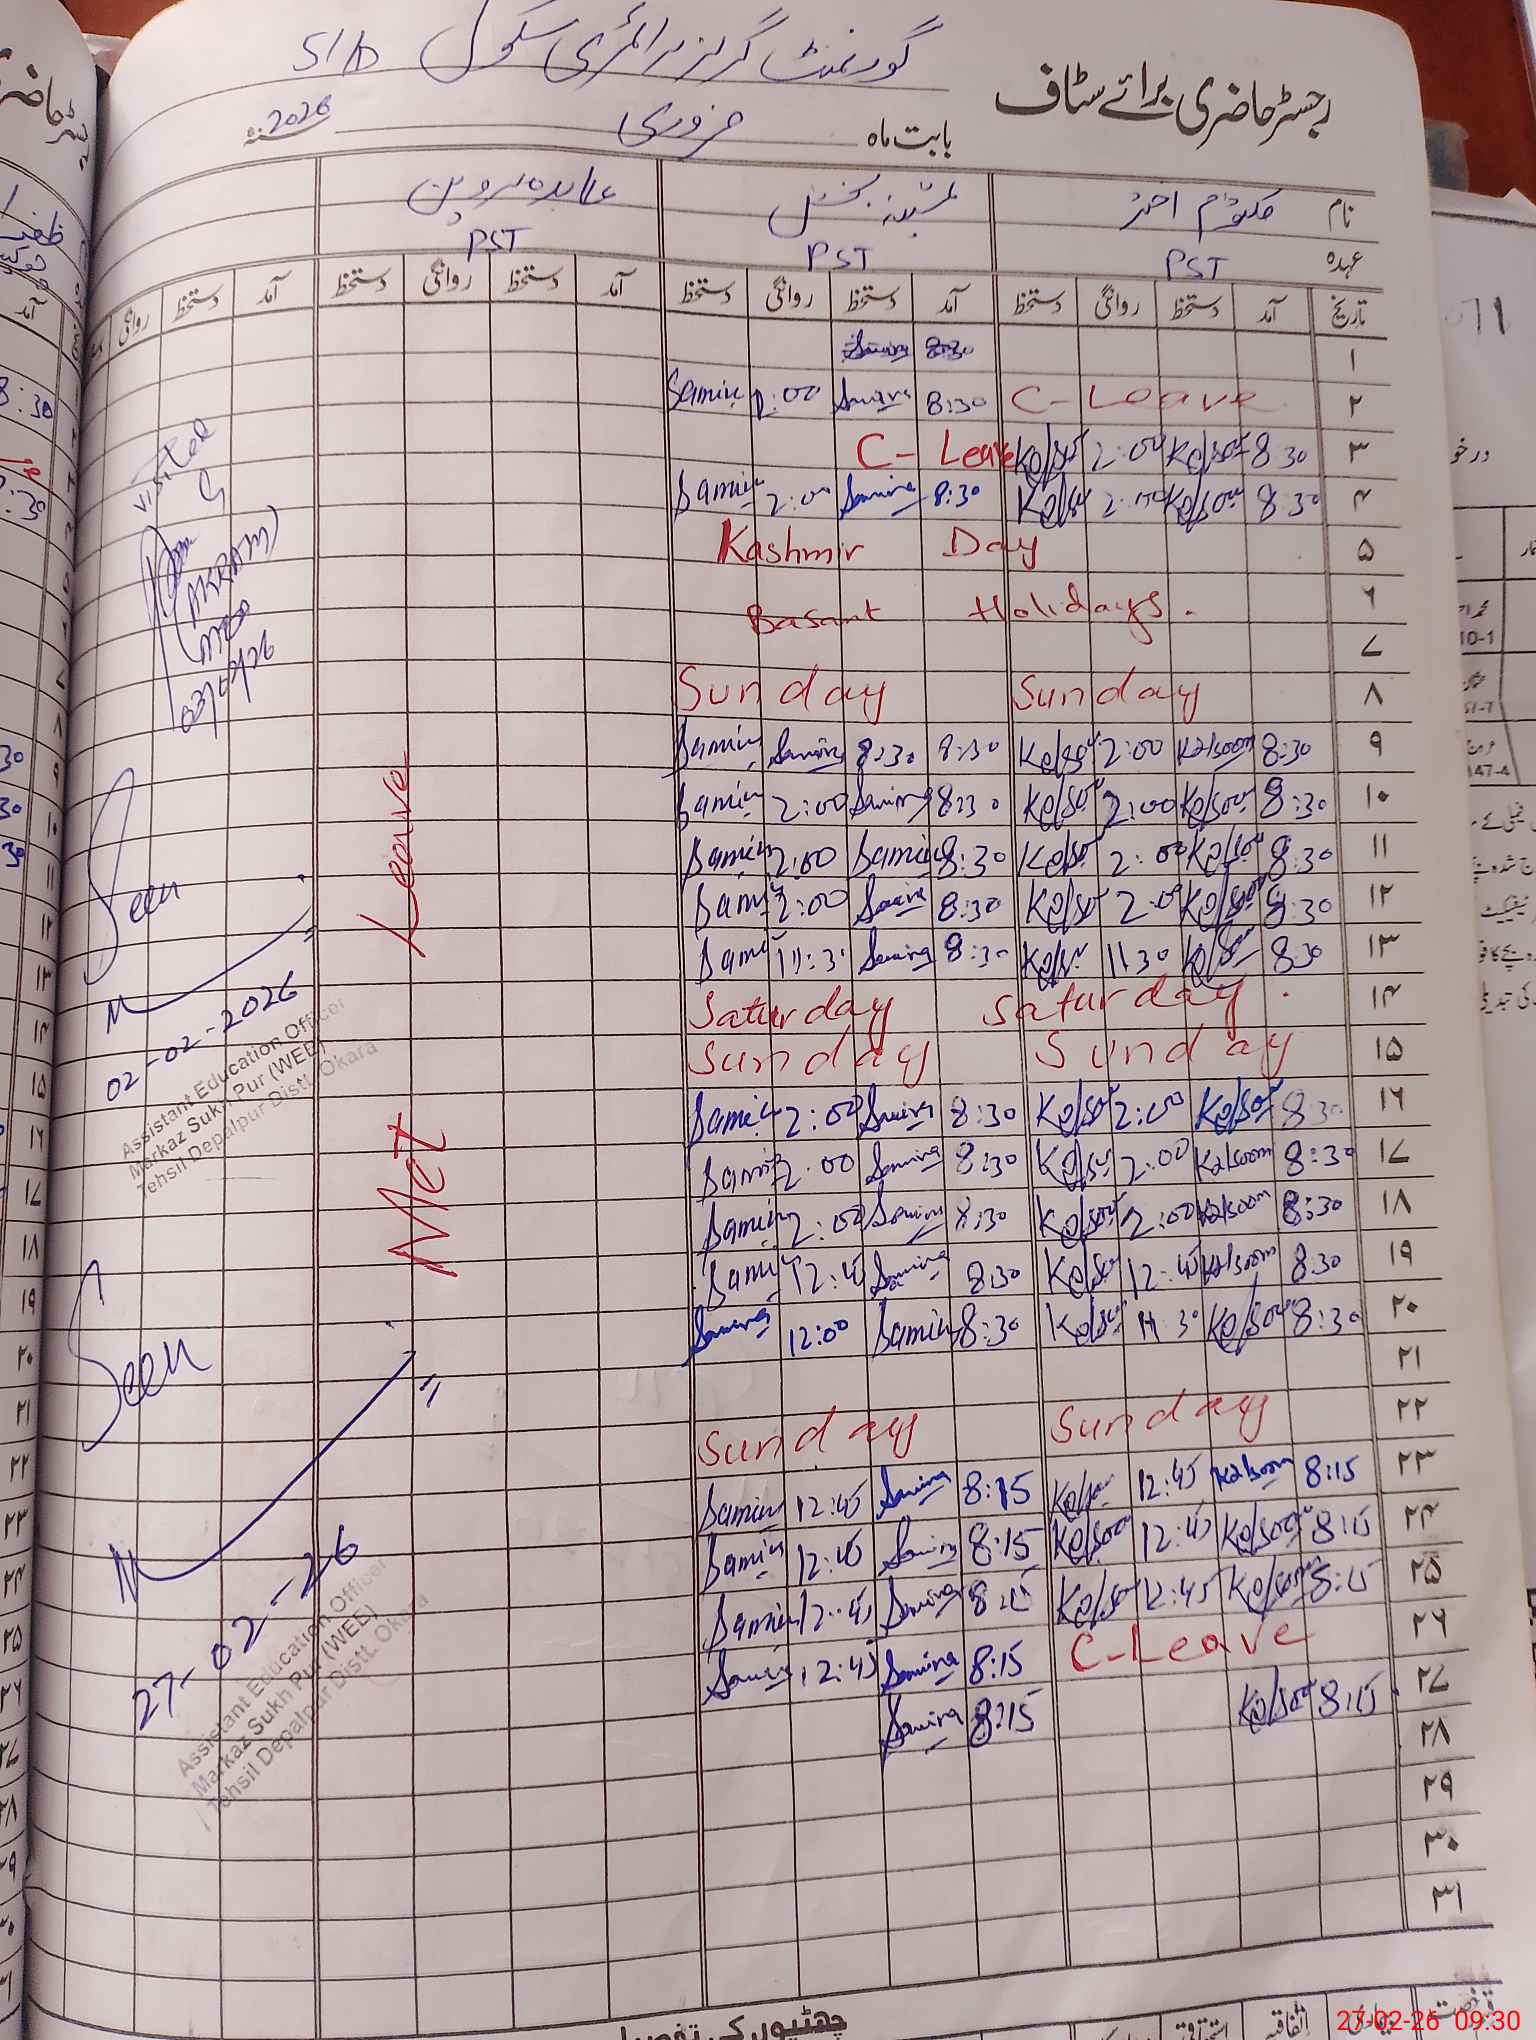 گورنمنٹ گرلز پرائمری سکول 51/D
رجسٹر حاضری برائے سٹاف
بابت ماہ فروری 2026
نام کلثوم اختر عابدہ پروین
عہدہ PST PST PST
تاریخ آمد دستخط روانگی دستخط آمد دستخط روانگی دستخط آمد دستخط روانگی دستخط آمد دستخط روانگی
۱ 8:30 Samina
۲ C-Leave 8:30 Samina 2:00 Samina
۳ 8:30 Kalsoom 2:00 Kalsoom C-Leave
۴ 8:30 Kalsoom 2:00 Kalsoom 8:30 Samina 2:00 Samina
۵ Kashmir Day
۶ Basant Holidays.
۷
۸ Sunday Sunday
۹ 8:30 Kalsoom 2:00 Kalsoom 8:30 8:30 Samina Samina
۱۰ 8:30 Kalsoom 2:00 Kalsoom 8:30 Samina 2:00 Samina
۱۱ 8:30 Kalsoom 2:00 Kalsoom 8:30 Samina 2:00 Samina
۱۲ 8:30 Kalsoom 2:00 Kalsoom 8:30 Samina 2:00 Samina
۱۳ 8:30 Kalsoom 11:30 Kalsoom 8:30 Samina 11:30 Samina
۱۴ Saturday Saturday.
۱۵ Sunday Sunday
۱۶ 8:30 Kalsoom 2:00 Kalsoom 8:30 Samina 2:00 Samina
۱۷ 8:30 Kalsoom 2:00 Kalsoom 8:30 Samina 2:00 Samina
۱۸ 8:30 Kalsoom 2:00 Kalsoom 8:30 Samina 2:00 Samina
۱۹ 8:30 Kalsoom 12:45 Kalsoom 8:30 Samina 12:45 Samina
۲۰ 8:30 Kalsoom 11:30 Kalsoom 8:30 Samina 12:00 Samina
۲۱
۲۲ Sunday Sunday
۲۳ 8:15 Kalsoom 12:45 Kalsoom 8:15 Samina 12:45 Samina
۲۴ 8:15 Kalsoom 12:45 Kalsoom 8:15 Samina 12:45 Samina
۲۵ 8:15 Kalsoom 12:45 Kalsoom 8:15 Samina 12:45 Samina
۲۶ C-Leave 8:15 Samina 12:45 Samina
۲۷ 8:15 Kalsoom 8:15 Samina
۲۸
۲۹
۳۰
۳۱
Met Leave
visited
(AKRAM)
Seen
02-02-2026
Assistant Education Officer
Markaz Sukh Pur (WEE)
Tehsil Depalpur Distt. Okara
Seen
27-02-26
Assistant Education Officer
Markaz Sukh Pur (WEE)
Tehsil Depalpur Distt. Okara
چھٹیوں کی تفصیل
27-02-26 09:30